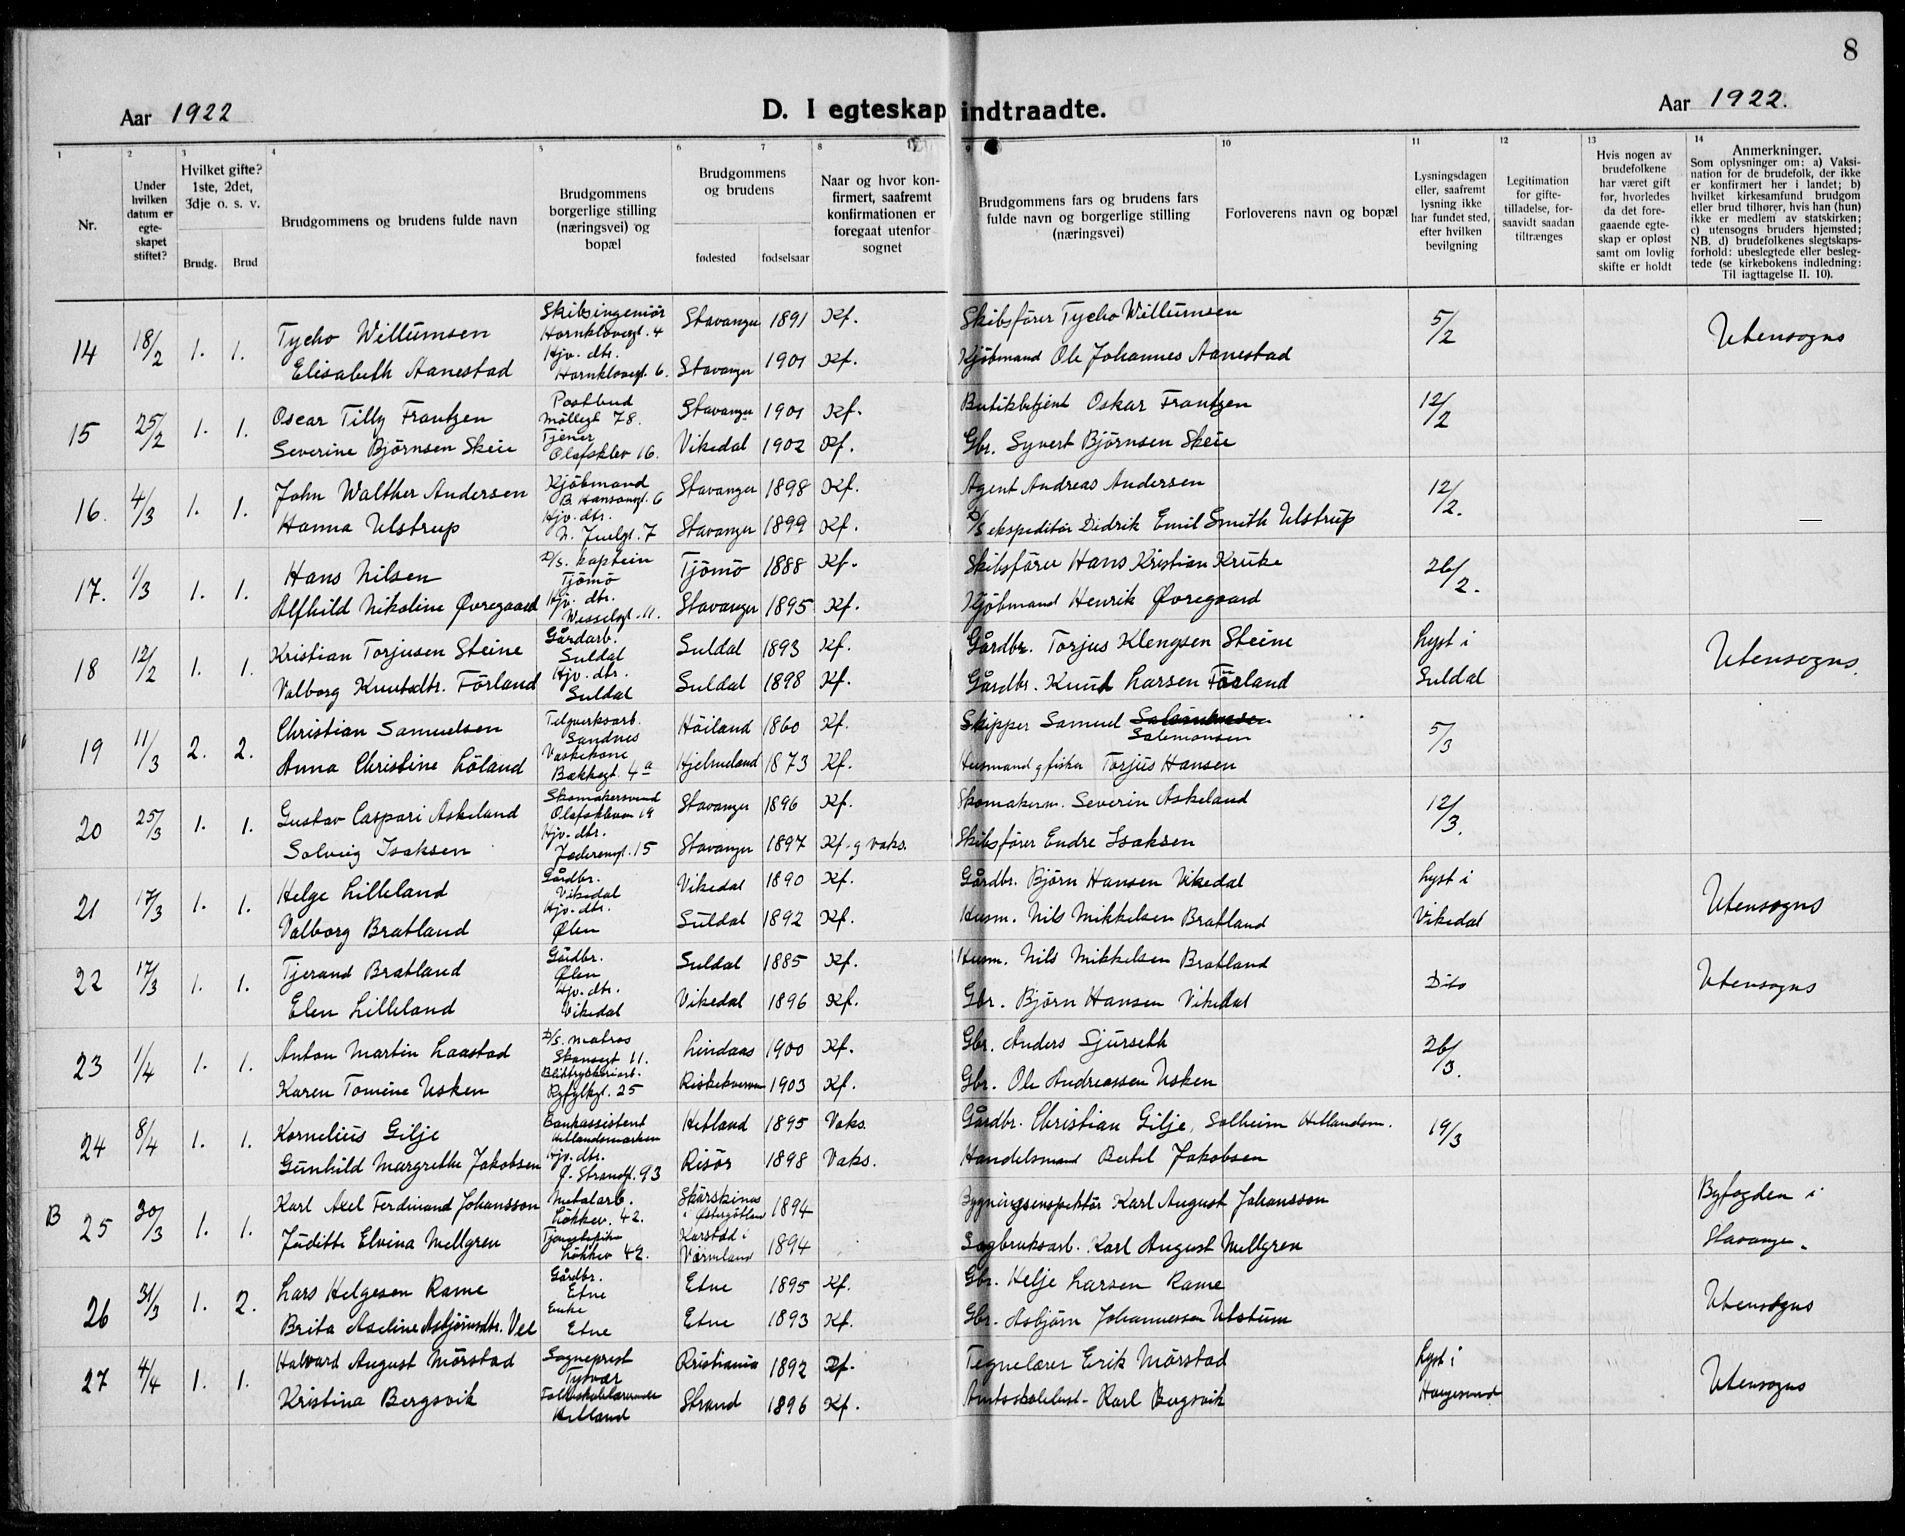 8
Aar 1922
D. I egteskap indtraadte.
Aar 1922.
1 2 3 4 5 6 7 8 9 10 11 12 13 14
Nr.
Under hvilken datum er egte-skapet stiftet?
Hvilket gifte? 1ste, 2det, 3dje o. s. v.
Brudg. Brud
Brudgommens og brudens fulde navn
Brudgommens borgerlige stilling (næringsvei) og bopæl
Brudgommens og brudens
fødested fødselsaar
Naar og hvor kon-firmert, saafremt konfirmationen er foregaat utenfor sognet
Brudgommens fars og brudens fars fulde navn og borgerlige stilling (næringsvei)
Forloverens navn og bopæl
Lysningsdagen eller, saafremt lysning ikke har fundet sted, efter hvilken bevilgning
Legitimation for gifte-tilladelse, for-saavidt saadan tiltrænges
Hvis nogen av brudefolkene har været gift før, hvorledes da det fore-gaaende egte-skap er opløst samt om lovlig skifte er holdt
Anmerkninger.
Som oplysninger om: a) Vaksi-nation for de brudefolk, der ikke er konfirmert her i landet; b) hvilket kirkesamfund brudgom eller brud tilhører, hvis han (hun) ikke er medlem av statskirken; c) utensogns bruders hjemsted; NB. d) brudefolkenes slegtskaps-forhold: ubeslegtede eller besleg-tede (se kirkebokens indledning: Til iagttagelse II. 10).
14 18/2 1. 1. Tycho Willumsen Skibsingeniør Harnklovegt. 4 Stavanger 1891 Kf. Skibsfører Tycho Willumsen 5/2 Utensogns
Elisabeth Aanestad Hjv. dtr. Harnklovegt. 6. Stavanger 1901 Kf. Kjøbmand Ole Johannes Aanestad
15 25/2 1. 1. Oscar Tilly Frantzen Postbud Møllegt 78. Stavanger 1901 Kf. Butikbetjent Oskar Frantzen 12/2
Severine Bjørnsen Skeie Tjener Olafsklev 16. Vikedal 1902 Kf. Gbr. Syvert Bjørnsen Skeie
16. 4/3 1. 1. John Walther Andersen Kjøbmand B. Hansongt. 6 Stavanger 1898 Kf. Agent Andreas Andersen 12/2. —
Hanna Ulstrup Hjv. dtr. N. Juelgt. 7 Stavanger 1899 Kf. D/S ekspeditør Didrik Emil Smith Ulstrup
17. 1/3 1. 1. Hans Nilsen D/S. kaptein Tjömö Tjömö 1888 Kf. Skibsfører Hans Kristian Kruke 26/2.
Alfhild Nikoline Øvregaard Hjv. dtr. Wesselsgt. 11. Stavanger 1895 Kf. Kjøbmand Henrik Øvregaard
18 12/2 1. 1. Kristian Torjusen Steine Gårdarb. Suldal Suldal 1893 Kf. Gårdbr. Torjus Klengsen Steine Lyst i Suldal Utensogns.
Valborg Knutsdtr. Förland Hjv. dtr. Suldal Suldal 1898 Kf. Gårdbr. Knut Larsen Förland
19 11/3 2. 2. Christian Samuelsen Telgverksarb. Sandnes Höiland 1860 Kf. Skipper Samuel Salomonsen 5/3
Anna Christine Löland Vaskekone Bakkegt. 4a Hjelmeland 1873 Kf. Husmand g fisker Torjus Hansen
20 25/3 1. 1. Gustav Caspari Askeland Skomakersvend Olafskleven 19 Stavanger 1896 Kf. Skomakerm. Severin Askeland 12/3.
Solveig Isaksen Hjv. dtr. Jæderengt. 15 Stavanger 1897 Kf. g vaks. Skibsfører Endre Isaksen
21 17/3 1. 1. Helge Lilleland Gårdbr. Vikedal Vikedal 1890 Kf. Gårdbr. Bjørn Hansen Vikedal Lyst i Vikedal Utensogns
Valborg Bratland Hjv. dtr. Ølen Suldal 1892 Kf. Husm. Nils Mikkelsen Bratland
22 17/3 1. 1. Tjerand Bratland Gårdbr. Ølen Suldal 1885 Kf. Husm. Nils Mikkelsen Bratland Dito Utensogns
Elen Lilleland Hjv. dtr. Vikedal Vikedal 1896 Kf. Gbr. Bjørn Hansen Vikedal
23 1/4 1. 1. Anton Martin Laastad D/S. matros Skansegt 11. Lindaas 1900 Kf. Gbr. Anders Sjurseth 26/3.
Karen Tomine Usken Bliktrykkeriarb. Ryfylkgt. 25 1903 Kf. Gbr. Ole Andreassen Usken
24 8/4 1. 1. Kornelius Gilje Bankassistent Hetlandsmarken Hetland 1895 Vaks. Gårdbr. Christian Gilje, Solheim Hetlandsm. 19/3
Gunhild Margrethe Jakobsen Hjv. dtr. Ø. Strandgt. 93 Risör 1898 Vaks. Handelsmand Bertel Jakobsen
B 25 30/3 1. 1. Karl Axel Ferdinand Johansson Metalarb. Løkkev. 42. i Østergøtland 1894 Bygningsinspektör Karl August Johansson Byfogden i Stavanger.
Juditte Elvina Mellgren Løkkev 42. Karstad i Värmland 1894 Sagbruksarb. Karl August Mellgren
26 31/3 1. 2. Lars Helgesen Rame Gårdbr. Etne Etne 1895 Kf. Gbr. Helje Larsen Rame Utensogns
Brita Aseline Asbjörnsdtr. Vel Enke Etne Etne 1893 Kf. Gbr. Asbjörn Johannessen Utstum
27 4/4 1. 1. Halvard August Mörstad Sogneprest Tysvær Kristiania 1892 Kf. Tegnelærer Erik Mörstad Lyst i Haugesund Utensogns
Kristina Bergsvik Folkeskolelærerinde Hetland Strand 1896 Kf. Amtsskolebest. Karl Bergsvik